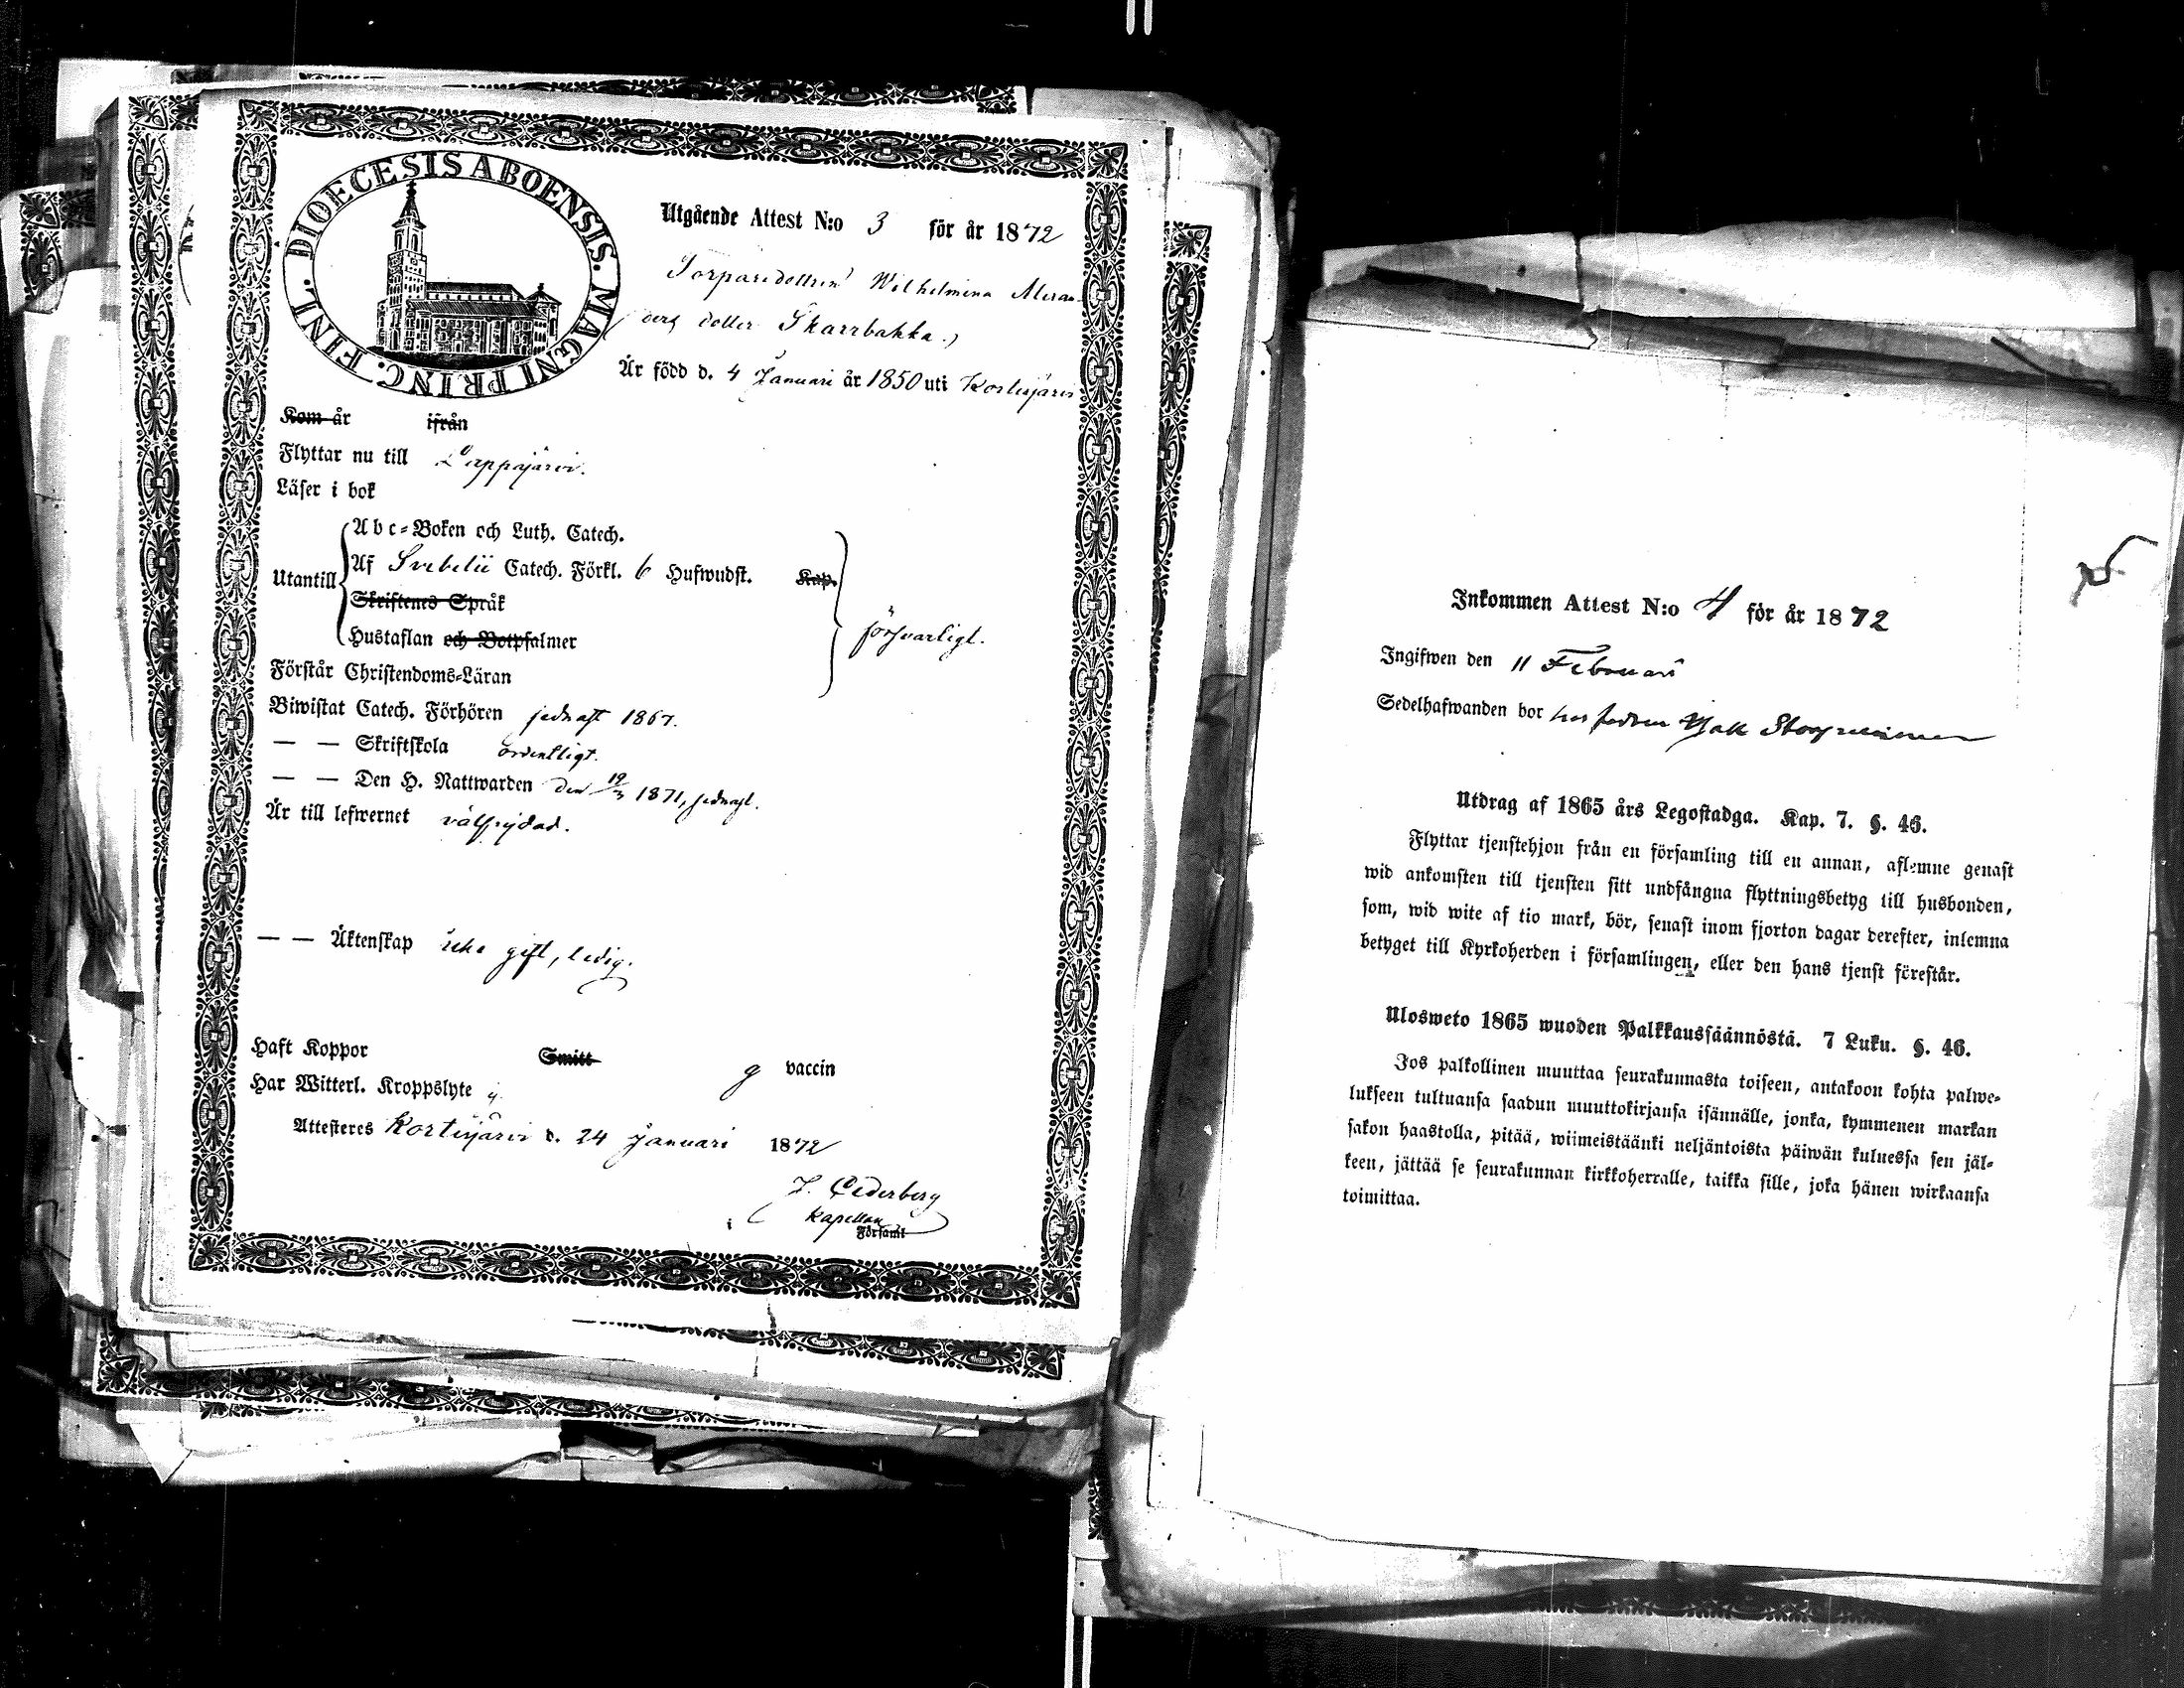 DIOECESIS ABOENSIS. MAGNI PRINC. FINL.
Utgående Attest N:o 3 för år 1872
Torparedottren Wilhelmina
dotter Skarrbakka.)
Är född d. 4 Januari år 1850 uti Kortesjärvi
Kom år ifrån
Flyttar nu till Lappajärvi.
Läser i bok
Utantill
Abc-Boken och Luth. Catech.
Af Svebelii Catech. Förkl. 6 Hufwudst. Kap.
Skriftenes Språk
Hustaflan och Botpsalmer
försvarligt.
Förstår Christendoms-Läran
Biwistat Catech. Förhören sednast 1867.
— — Skriftskola ordentligt.
— — Den H. Nattwarden den 19/3 1871, sednast.
Är till lefwernet välfrejdad.
— — Äktenskap icke gift, ledig.
Haft Koppor Smitt g vaccin
Har Witterl. Kroppslyte ej
Attesteras Kortesjärvi d. 24 Januari 1872
J. Cederberg
Kapellan
i Församl
Inkommen Attest N:o 4 för år 1872
Ingifwen den 11 Februari
Sedelhafwanden bor hos fadren
Utdrag af 1865 års Legostadga. Kap. 7. §. 46.
Flyttar tjenstehjon från en församling till en annan, aflemne genast
wid ankomsten till tjensten sitt undfångna flyttningsbetyg till husbonden,
som, wid wite af tio mark, bör, senast inom fjorton dagar derefter, inlemna
betyget till Kyrkoherden i församlingen, eller den hans tjenst förestår.
Ulosweto 1865 wuoden Palkkaussäännöstä. 7 Luku. §. 46.
Jos palkollinen muuttaa seurakunnasta toiseen, antakoon kohta palwe-
lukseen tultuansa saadun muuttokirjansa isännälle, jonka, kymmenen markan
sakon haastolla, pitää, wiimeistäänki neljäntoista päiwän kuluessa sen jäl-
keen, jättää se seurakunnan kirkkoherralle, taikka sille, joka hänen wirkaansa
toimittaa.